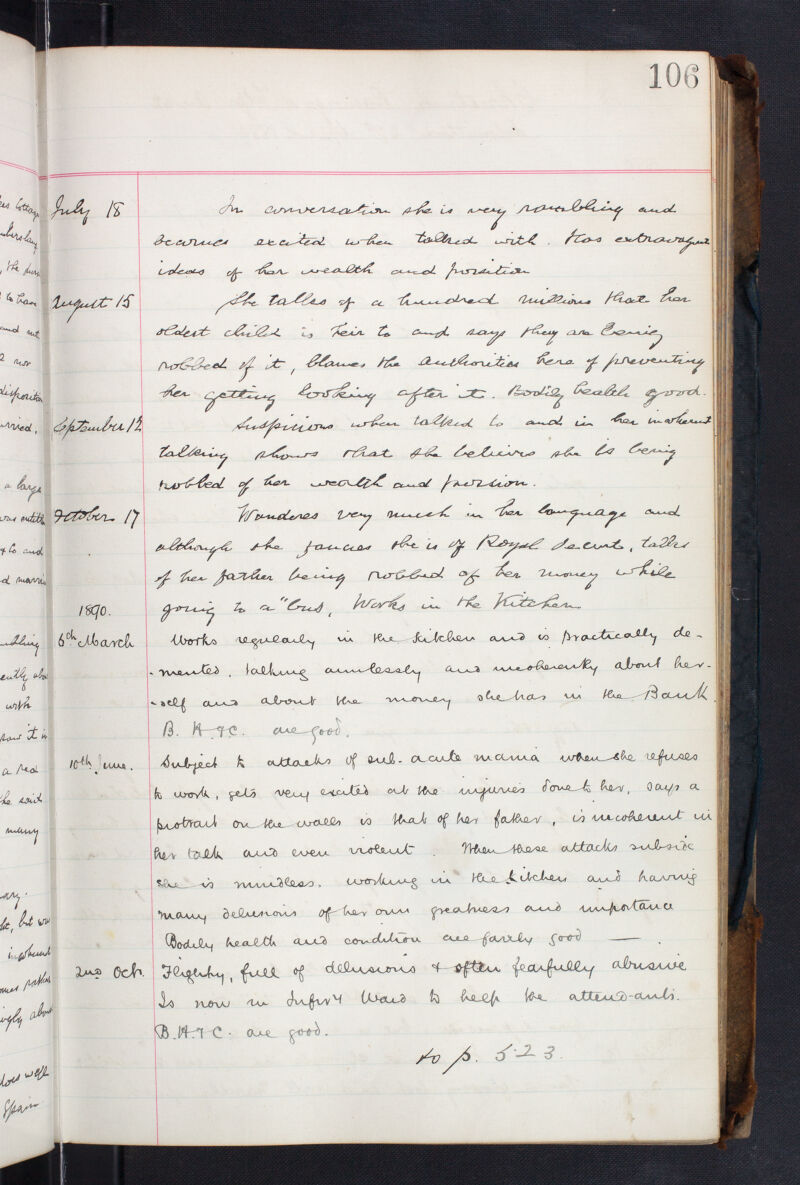 106
July 18 In conversation she is very rambling and
becomes excited when talked with. Has extravagant
ideas of her wealth and position
August 15 She talks of a hundred millions that her
oldest child is heir to and says they are being
robbed of it, blames the authorities here of preventing
her getting looking after it. Bodily health good.
September 12 Suspicious when talked to and in her incoherent
talking shows that she believes she is being
robbed of her wealth and position.
October 17 Wanderes very much in her language and
although she fancies she is of Royal decent, talks
of her father being robbed of her money while
going to a "bus, Works in the Kitchen
1890.
6th March Works regularly in the kitchen and is practically de-
-mented, talking aimlessly and incoherently about her-
-self and about the money she has in the Bank.
B. H. & C. are good.
10th June. Subject to attacks of sub-acute mania when she refuses
to work, gets very excited at the injuries done to her, says a
protrait on the walls is that of her father, is incoherent in
her talk and even violent. When these attacks subside
she is mindless. working in the kitchen and having
many delusions of her own greatness and importance
Bodily health and condition are fairly good —.
2nd Oct. Flighty, full of delusions & often fearfully abusive
Is now in Infir'y Ward to help the attend-ants.
B. H. & C. are good.
to p. 523.